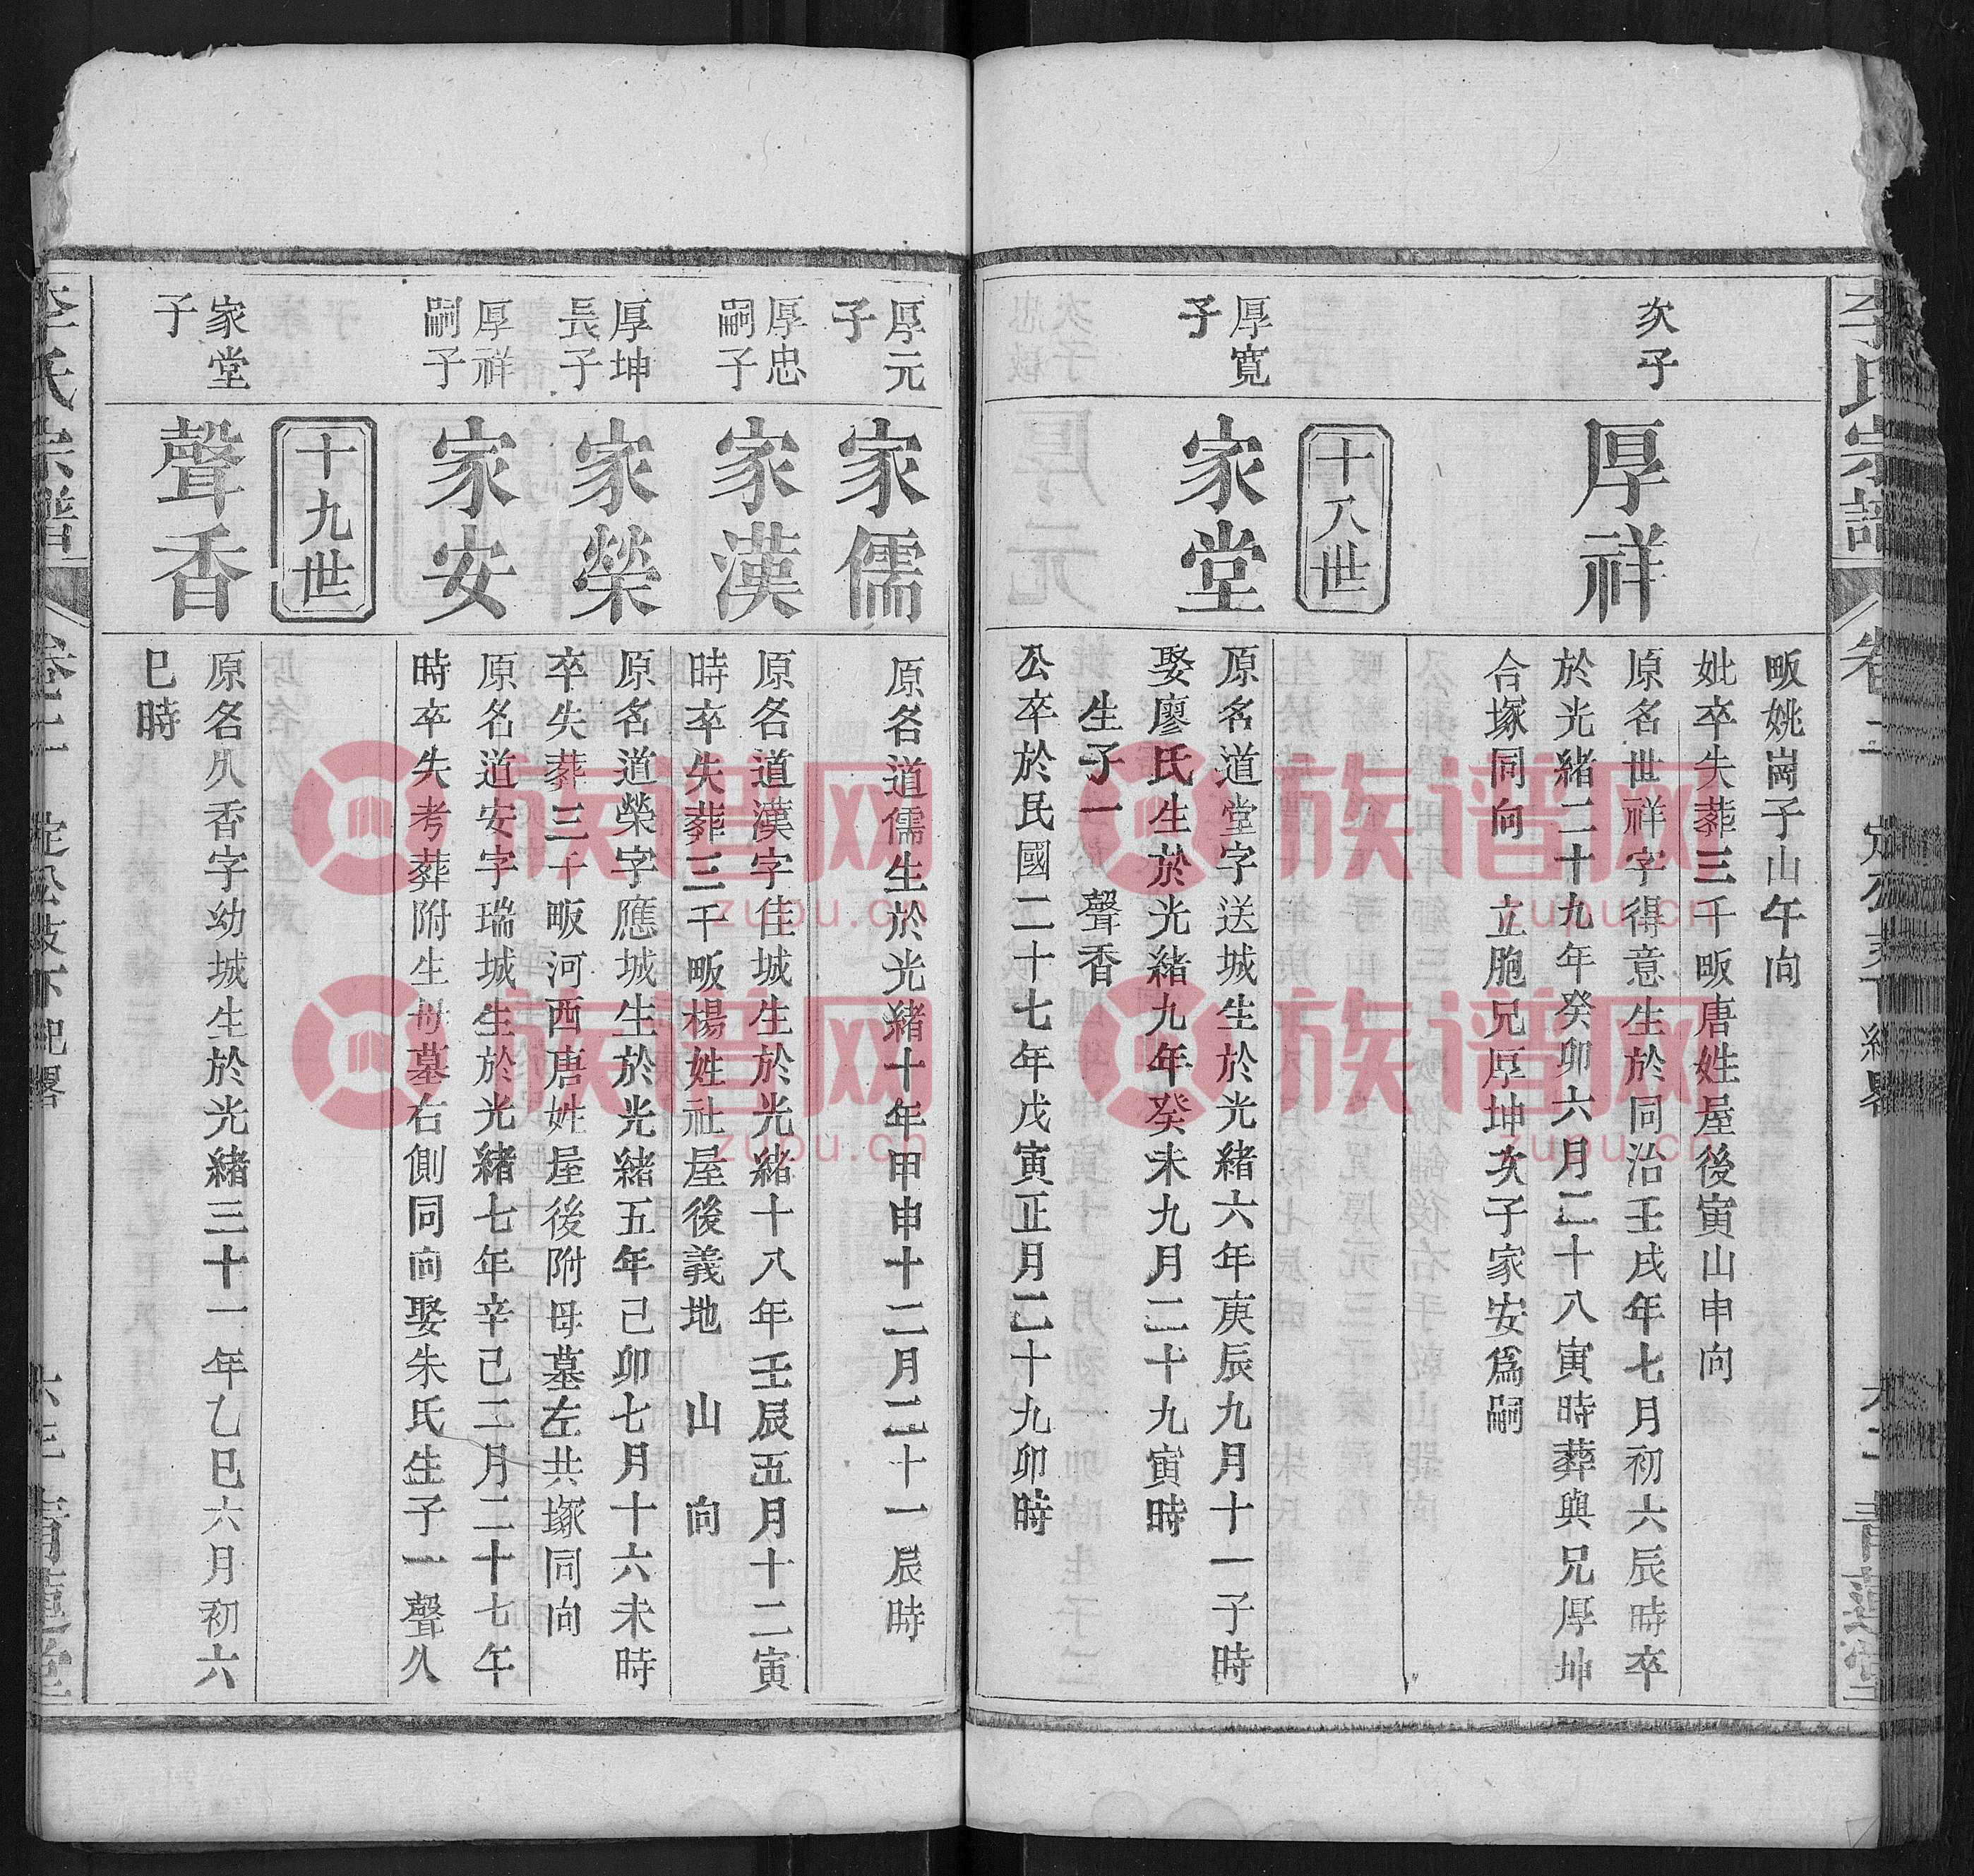 畈姚崗子山午向
妣卒失葬三千畈唐姓屋後寅山申向
次子
厚祥
原名世祥字得意生於同治壬戌年七月初六辰時卒
於光緒二十九年癸卯六月二十八寅時葬與兄厚坤
合塚同向　立胞兄厚坤次子家安爲嗣
十八世
厚寬
子
家堂
原名道堂字送城生於光緒六年庚辰九月十一子時
娶廖氏生於光緒九年癸未九月二十九寅時
生子一　聲香
公卒於民國二十七年戊寅正月二十九卯時
厚元
子
家儒
原名道儒生於光緒十年甲申十二月二十一辰時
厚忠
嗣子
家漢
原名道漢字佳城生於光緒十八年壬辰五月十二寅
時卒失葬三千畈楊姓社屋後義地　山　向
厚坤
長子
家榮
原名道榮字應城生於光緒五年己卯七月十六未時
卒失葬三千畈河西唐姓屋後附母墓左共塚同向
厚祥
嗣子
家安
原名道安字瑞城生於光緒七年辛己二月二十七午
時卒失考葬附生母墓右側同向娶朱氏生子一聲久
十九世
家堂
子
聲香
原名久香字幼城生於光緒三十一年乙巳六月初六
巳時
李氏宗譜
族谱网
zupu.cn
族谱网
zupu.cn
族谱网
zupu.cn
族谱网
zupu.cn